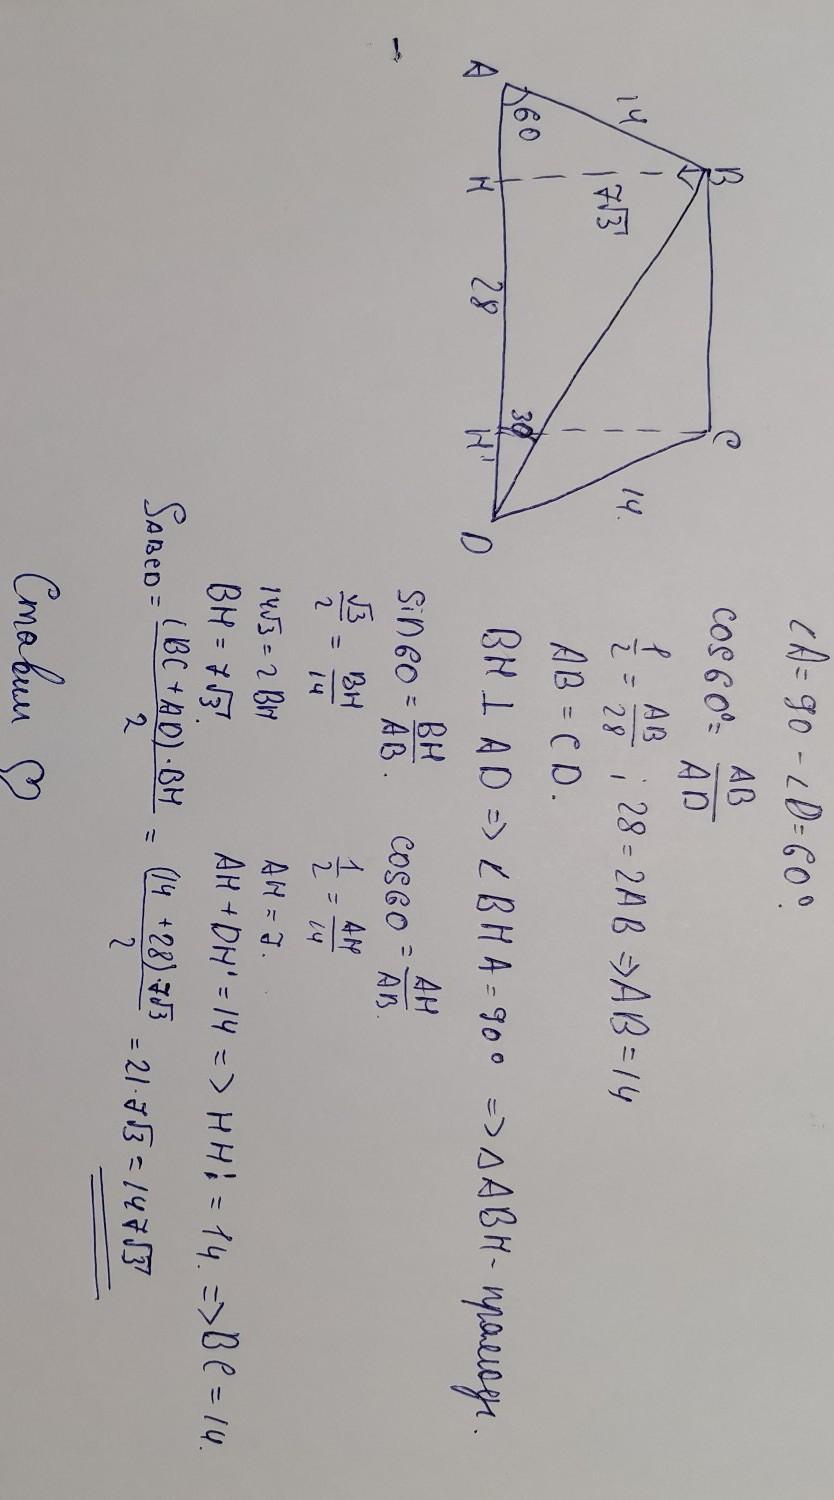 B
C
14
7√3
14.
60
30
A
H
28
H'
D
∠A = 90 - ∠D = 60°.
cos60° = AB/AD
1/2 = AB/28 ; 28 = 2AB => AB = 14
AB = CD.
BH ⊥ AD => ∠BHA = 90° => △ABH - прямоуг.
sin60 = BH/AB. cos60 = AH/AB.
√3/2 = BH/14 1/2 = AH/14
14√3 = 2BH AH = 7.
BH = 7√3. AH + DH' = 14 => HH' = 14. => BC = 14.
SABCD = (BC + AD)·BH/2 = (14 + 28)·7√3/2 = 21·7√3 = 147√3
Ставим ♡